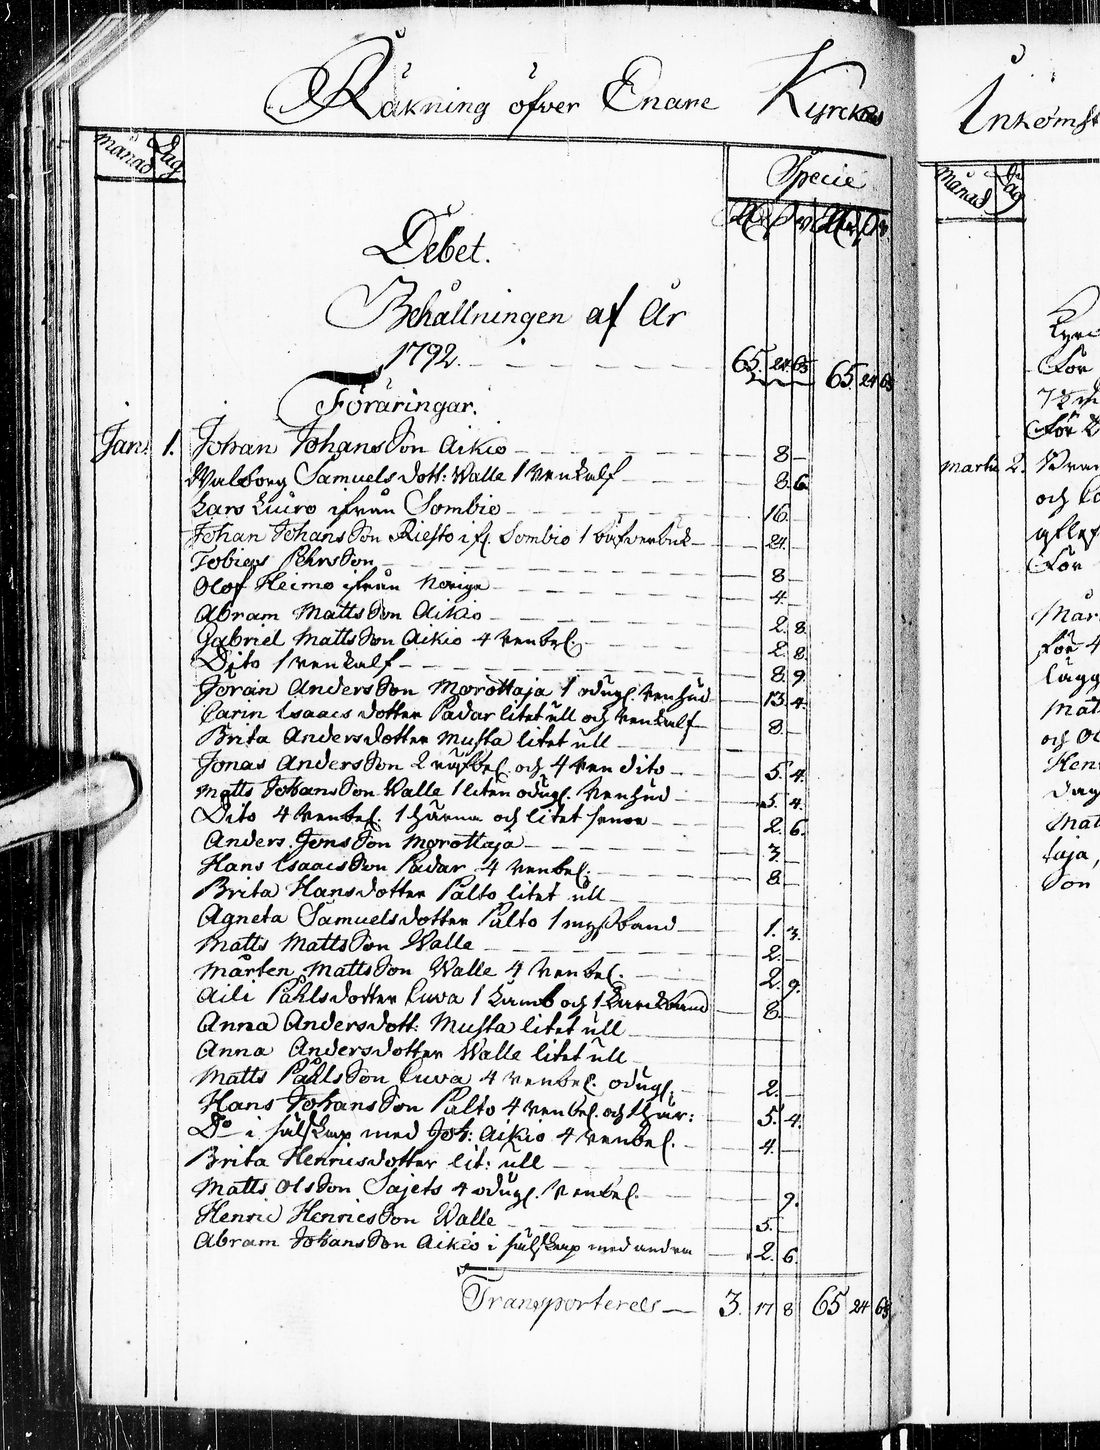 Räkning öfver Enare Kyrckas
månad Dag
Specie
Debet.
Behållningen af År
1792. 65. 24. 68 65. 24 68
Föräringar.
Jan: 1. Johan Johansson Aikio 8
Walborg Samuels dott: Walle 1 renkalf 8. 6
Lars Kuiro ifrån Sombio 16.
Johan Johansson Riesto if. Sombio 1 24.
Tobias Pehrsson 8
Olof Heimo ifrån Norige 4
Abram Mattsson Aikio 2. 8
Gabriel Mattsson Aikio 4 renbel. 2. 8
Dito 1 renkalf 8. 9.
Jöran Andersson Morottaja 1 odugl. renhud 13. 4
Carin Isaacs dotter Padar litet ull och renkalf 8
Brita Andersdotter Musta litet ull
Jonas Andersson 2 och 4 ren dito 5. 4.
Matts Johansson Walle 1 liten odugl. renhud 5. 4.
Dito 4 renbel. 1 och litet 2. 6.
Anders Jonsson Morottaja 3.
Hans Isaacsson Padar 4 renbel. 8
Brita Hansdotter Palto litet ull
Agneta Samuelsdotter Palto 1 1. 3.
Matts Mattsson Walle 2.
Mårten Mattsson Walle 4 renbel. 2. 9.
Aili Påhlsdotter Cuva 1 Lamb och 1 8
Anna Andersdott: Musta litet ull
Anna Andersdotter Walle litet ull
Matts Påhlsson Cuva 4 renbel. odugl. 2.
Hans Johansson Palto 4 renbel. och 5. 4.
Do i sälskap med Joh: Aikio 4 renbel. 4.
Brita Henricsdotter lit: ull
Matts Olsson Sajets 4 odugl. renbel. 9.
Henric Henricsson Walle 5.
Abram Johansson Aikio i sälskap med andra 2. 6.
Transporteres 3. 17 8 65 24 68
Inkomst
månad Dag
För
För
martii 2.
och
För
Mår
för 4
lägg
Mat
och
Hen
dag
Mat
taja,
Son